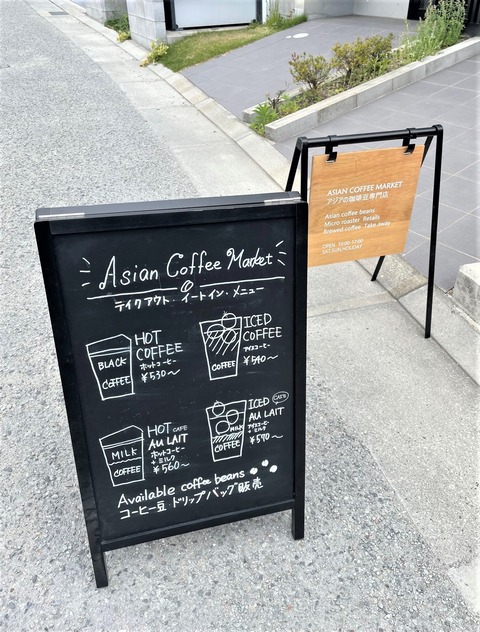 Asian Coffee Market
テイクアウト・イートイン・メニュー
BLACK
COFFEE
HOT
COFFEE
ホットコーヒー
¥530〜
COFFEE
ICED
COFFEE
アイスコーヒー
¥540〜
MILK
COFFEE
HOT CAFE
AU LAIT
ホットコーヒー
+ミルク
¥560〜
MILK
COFFEE
ICED CAFE
AU LAIT
アイスコーヒー
+ミルク
¥570〜
Available coffee beans
コーヒー豆 ドリップバッグ販売
ASIAN COFFEE MARKET
アジアの珈琲豆専門店
Asian coffee beans
Micro roaster Retails
Brewed coffee Take away
SAT.SUN.HOLIDAY